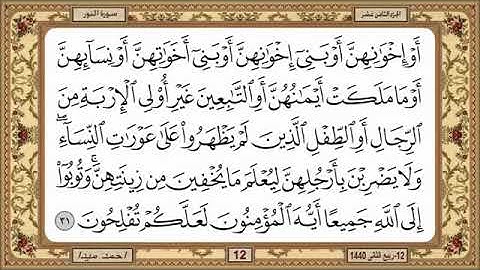 الجزء الثامن عشر
سورة النور
أَوْ إِخْوَٰنِهِنَّ أَوْ بَنِىٓ إِخْوَٰنِهِنَّ أَوْ بَنِىٓ أَخَوَٰتِهِنَّ أَوْ نِسَآئِهِنَّ
أَوْ مَا مَلَكَتْ أَيْمَٰنُهُنَّ أَوِ ٱلتَّٰبِعِينَ غَيْرِ أُو۟لِى ٱلْإِرْبَةِ مِنَ
ٱلرِّجَالِ أَوِ ٱلطِّفْلِ ٱلَّذِينَ لَمْ يَظْهَرُوا۟ عَلَىٰ عَوْرَٰتِ ٱلنِّسَآءِ ۖ
وَلَا يَضْرِبْنَ بِأَرْجُلِهِنَّ لِيُعْلَمَ مَا يُخْفِينَ مِن زِينَتِهِنَّ ۚ وَتُوبُوٓا۟
إِلَى ٱللَّهِ جَمِيعًا أَيُّهَ ٱلْمُؤْمِنُونَ لَعَلَّكُمْ تُفْلِحُونَ ٣١
12-ربيع الثاني 1440
12